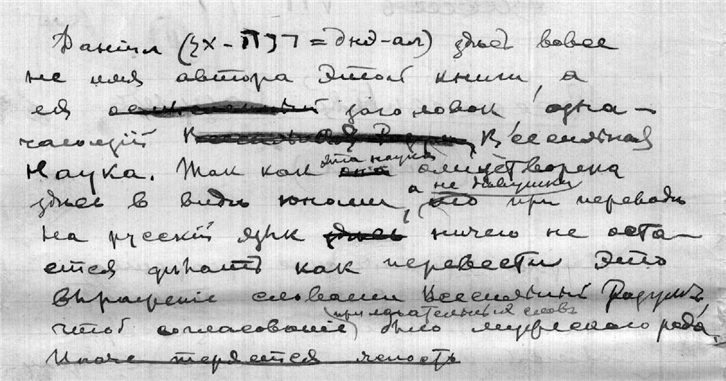 Данiил (ＺХ-ПЗＴ=днд-ал) здѣсь вовсе
не имя автора этой книги, а
ея заголовок, озна-
чающiй Вселенная
Наука. Так как эта наука олицетворена
здѣсь в видѣ юноши, а не дѣвушки, то при переводѣ
на русскiй язык ничего не оста-
ется дѣлать как перевести это
выраженiе словами Вселенный Разумъ,
чтоб согласованiе прилагательных словъ было мужескаго рода.
Иначе теряется ясность